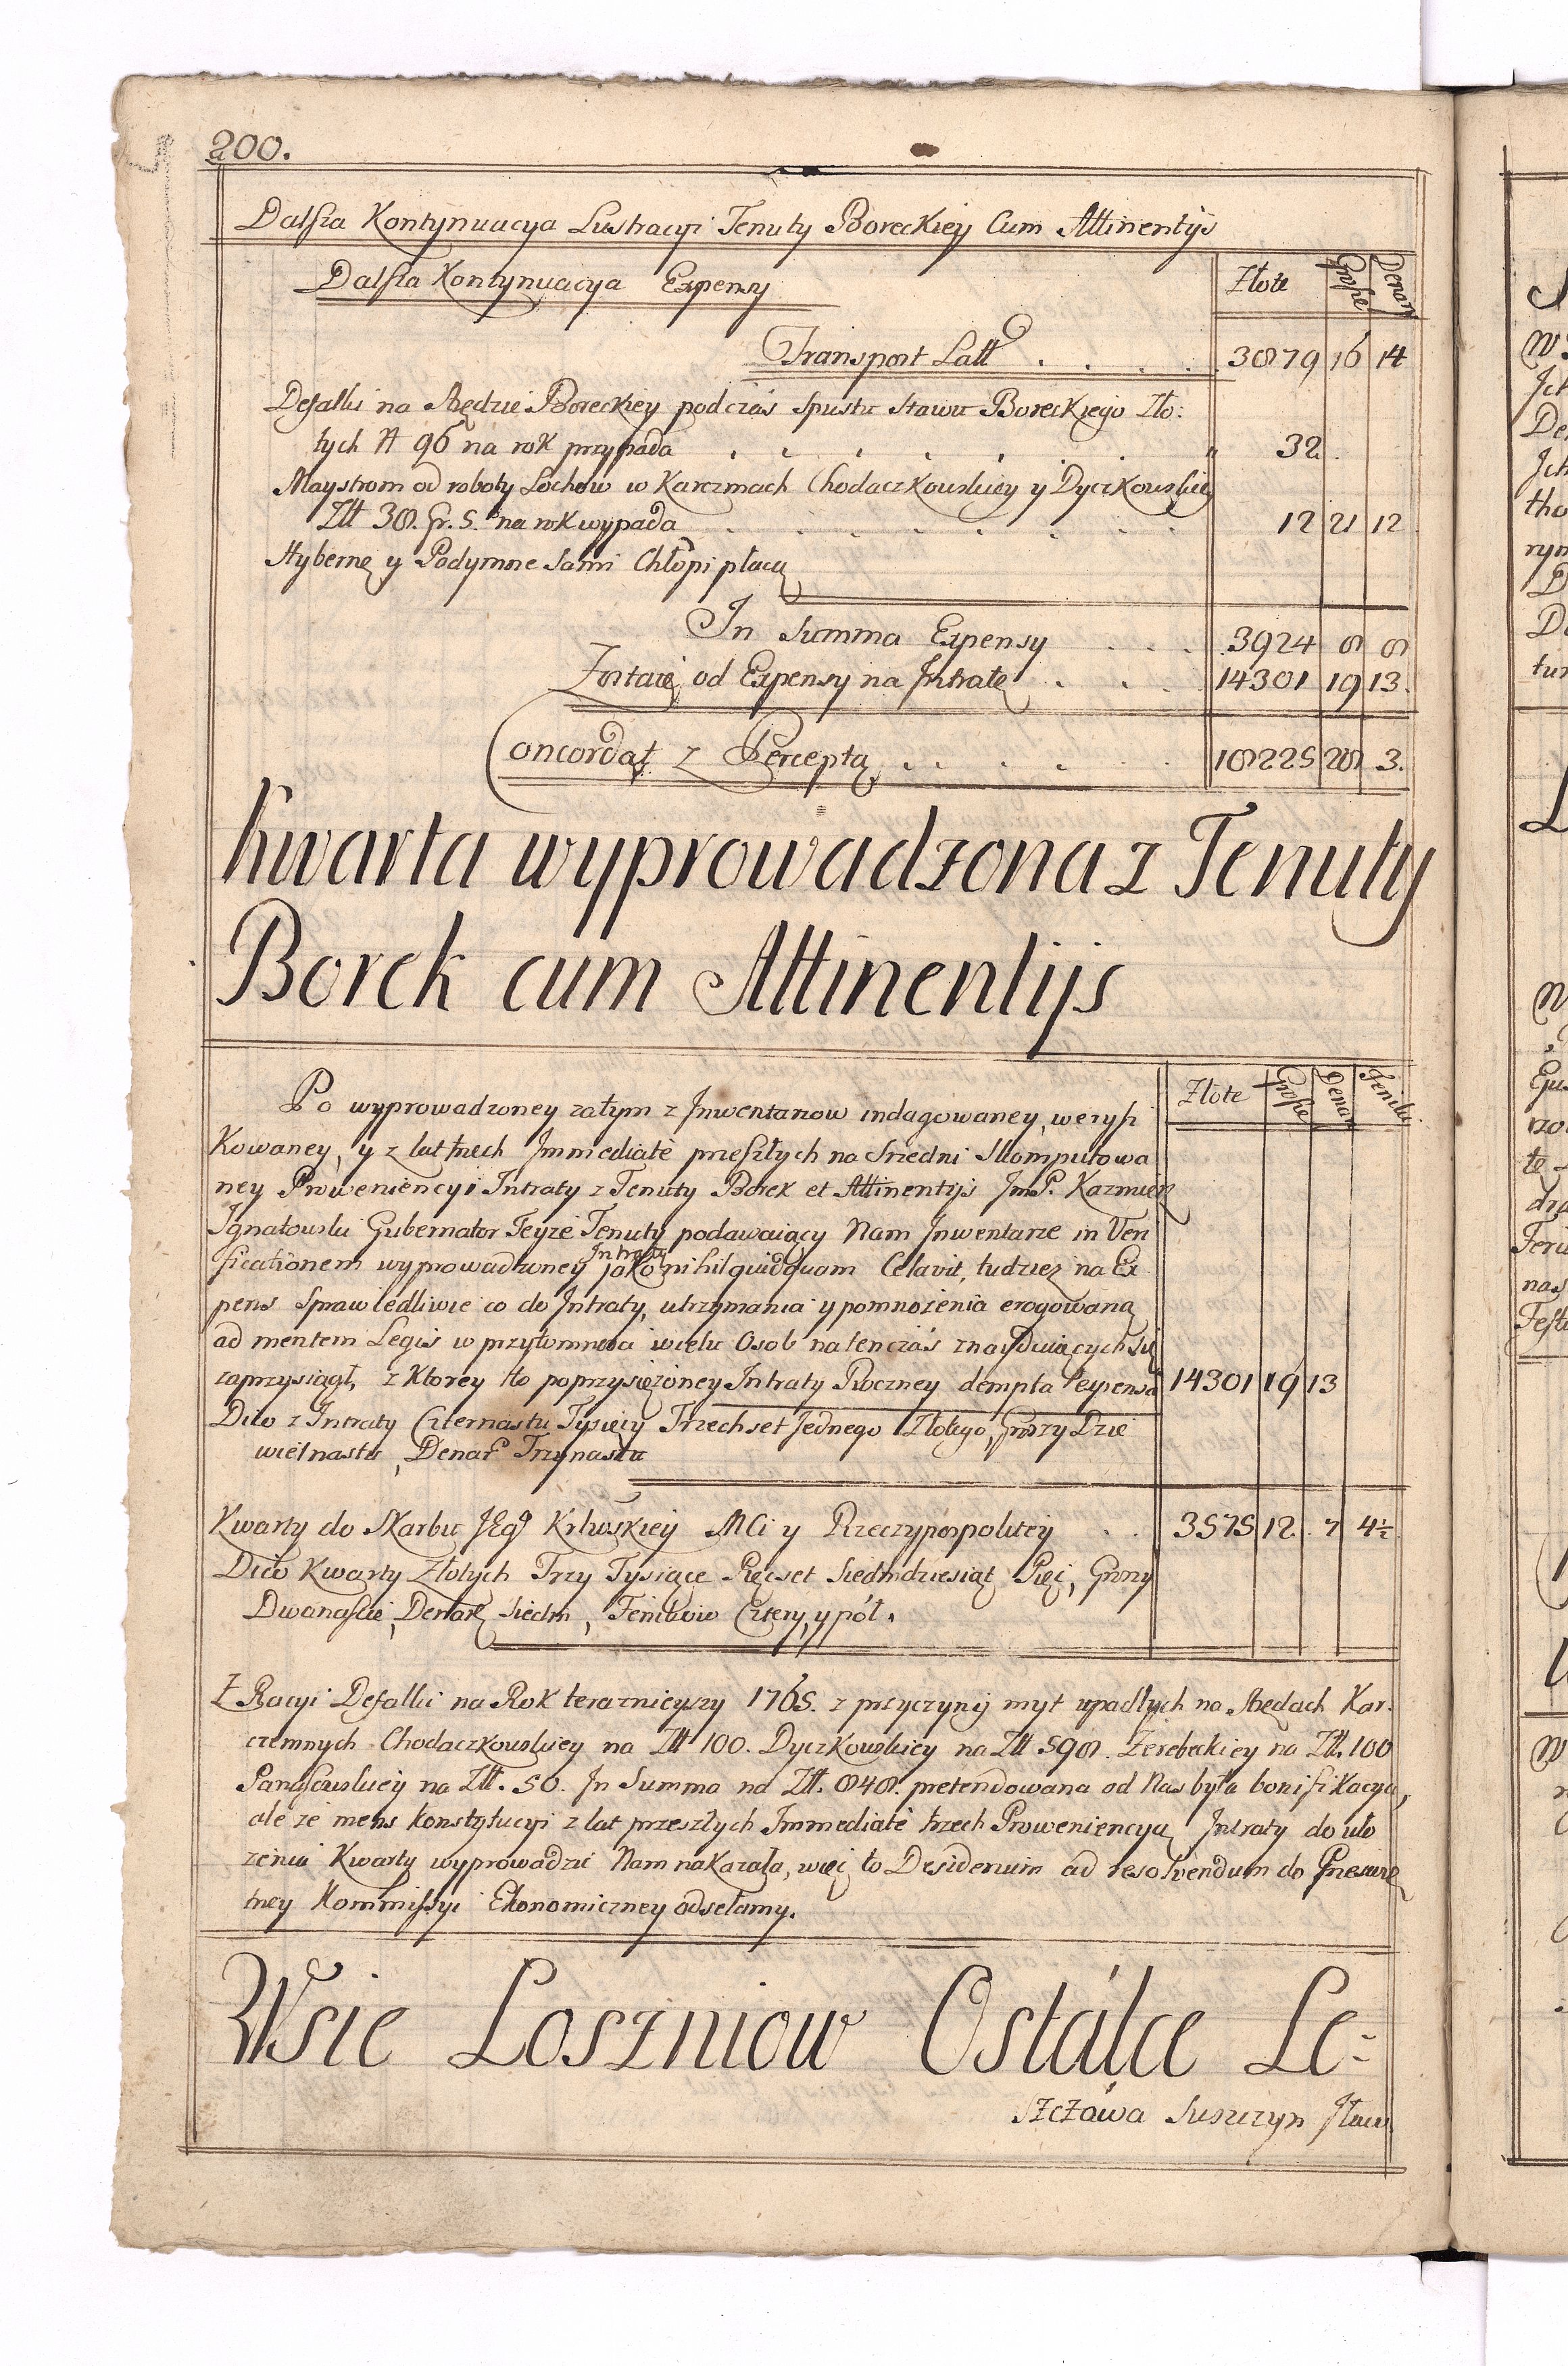 200.
Dalsza Kontynuacya Lustracyi Tenuty Boreckiey Cum Attinentijs
Dalsza Kontynuacya Expensy Złote Grosze Denar
Transport Latt . . . . 3879 16 14
Defalki na Arędzie Boreckiey podczas Spustu Stawu Boreckiego Zło:
tych 96 na rok przypada 32.
Maystrom od roboty Lochow w Karczmach Chodaczkowskiey y Dyczkowskiey
Złt 38. Gr. 5. na rok wypada 12 21 12
Hybernę y Podymne Sami Chłopi płacą
In Summa Expensy . . . 3924 8 8
Zostaie od Expensy na Intratę . . . 14301 19 13.
Concordat z Perceptą . . . . 18225 28 3.
Kwarta wyprowadzona z Tenuty
Borek cum Attinentijs
Złote Grosze Denar Fenik:
Po wyprowadzoney zatym z Inwentarzow indagowaney, weryfi
kowaney, y z lat trzech Immediatè przeszłych na Sredni Skomputowa
ney Proweniencyi Intraty z Tenuty Borek et Attinentijs JmP. Kazmierz
Ignatowski Gubernator Teyże Tenuty podawaiący Nam Inwentarze in Veri
ficationem wyprowadzoney Intraty jako nihil quidquam Celavit, tudziez na Ex
pens Sprawiedliwie co do Intraty, utrzymania y pomnożenia erogowaną
ad mentem Legis w przytomnosci wielu Osob natenczas znayduiących się
zaprzysiągł, z Ktorey to poprzysiężoney Intraty Roczney dempta Expensa 14301 19 13
Dico z Intraty Czternastu Tysięcy Trzechset Jednego Złotego, Groszy Dzie
wietnastu, Denar Trzynastu
Kwarty do Skarbu JEgo Krlwskiey MCi y Rzeczypospolitey . . 3575 12. 7 4½
Dico Kwarty Złotych Trzy Tysiące Pięcset Siedmdziesiąt Pięć, Groszy
Dwanaście, Denar Siedm, Fenikow Cztery, y pół.
Z Racyi Defalki na Rok teraznieyszy 1765. z przyczyny myt upadłych na Arędach Kar.
czemnych Chodaczkowskiey na Złt 100. Dyczkowskiey na Złt 598. Zerebeckiey na Złt. 100
na Złt. 50. In Summa na Złt. 848. pretendowana od Nas była bonifikacya,
ale że mens konstytucyi z lat przeszłych Immediatè trzech Proweniencyą Intraty do uło
żenia Kwarty wyprowadzić Nam nakazała, więc to Desiderium ad resolvendum do Przeswie
tney Kommissyi Ekonomiczney odsełamy.
Wsie Loszniow Ostálce Le-
szczáwa Suszczyn